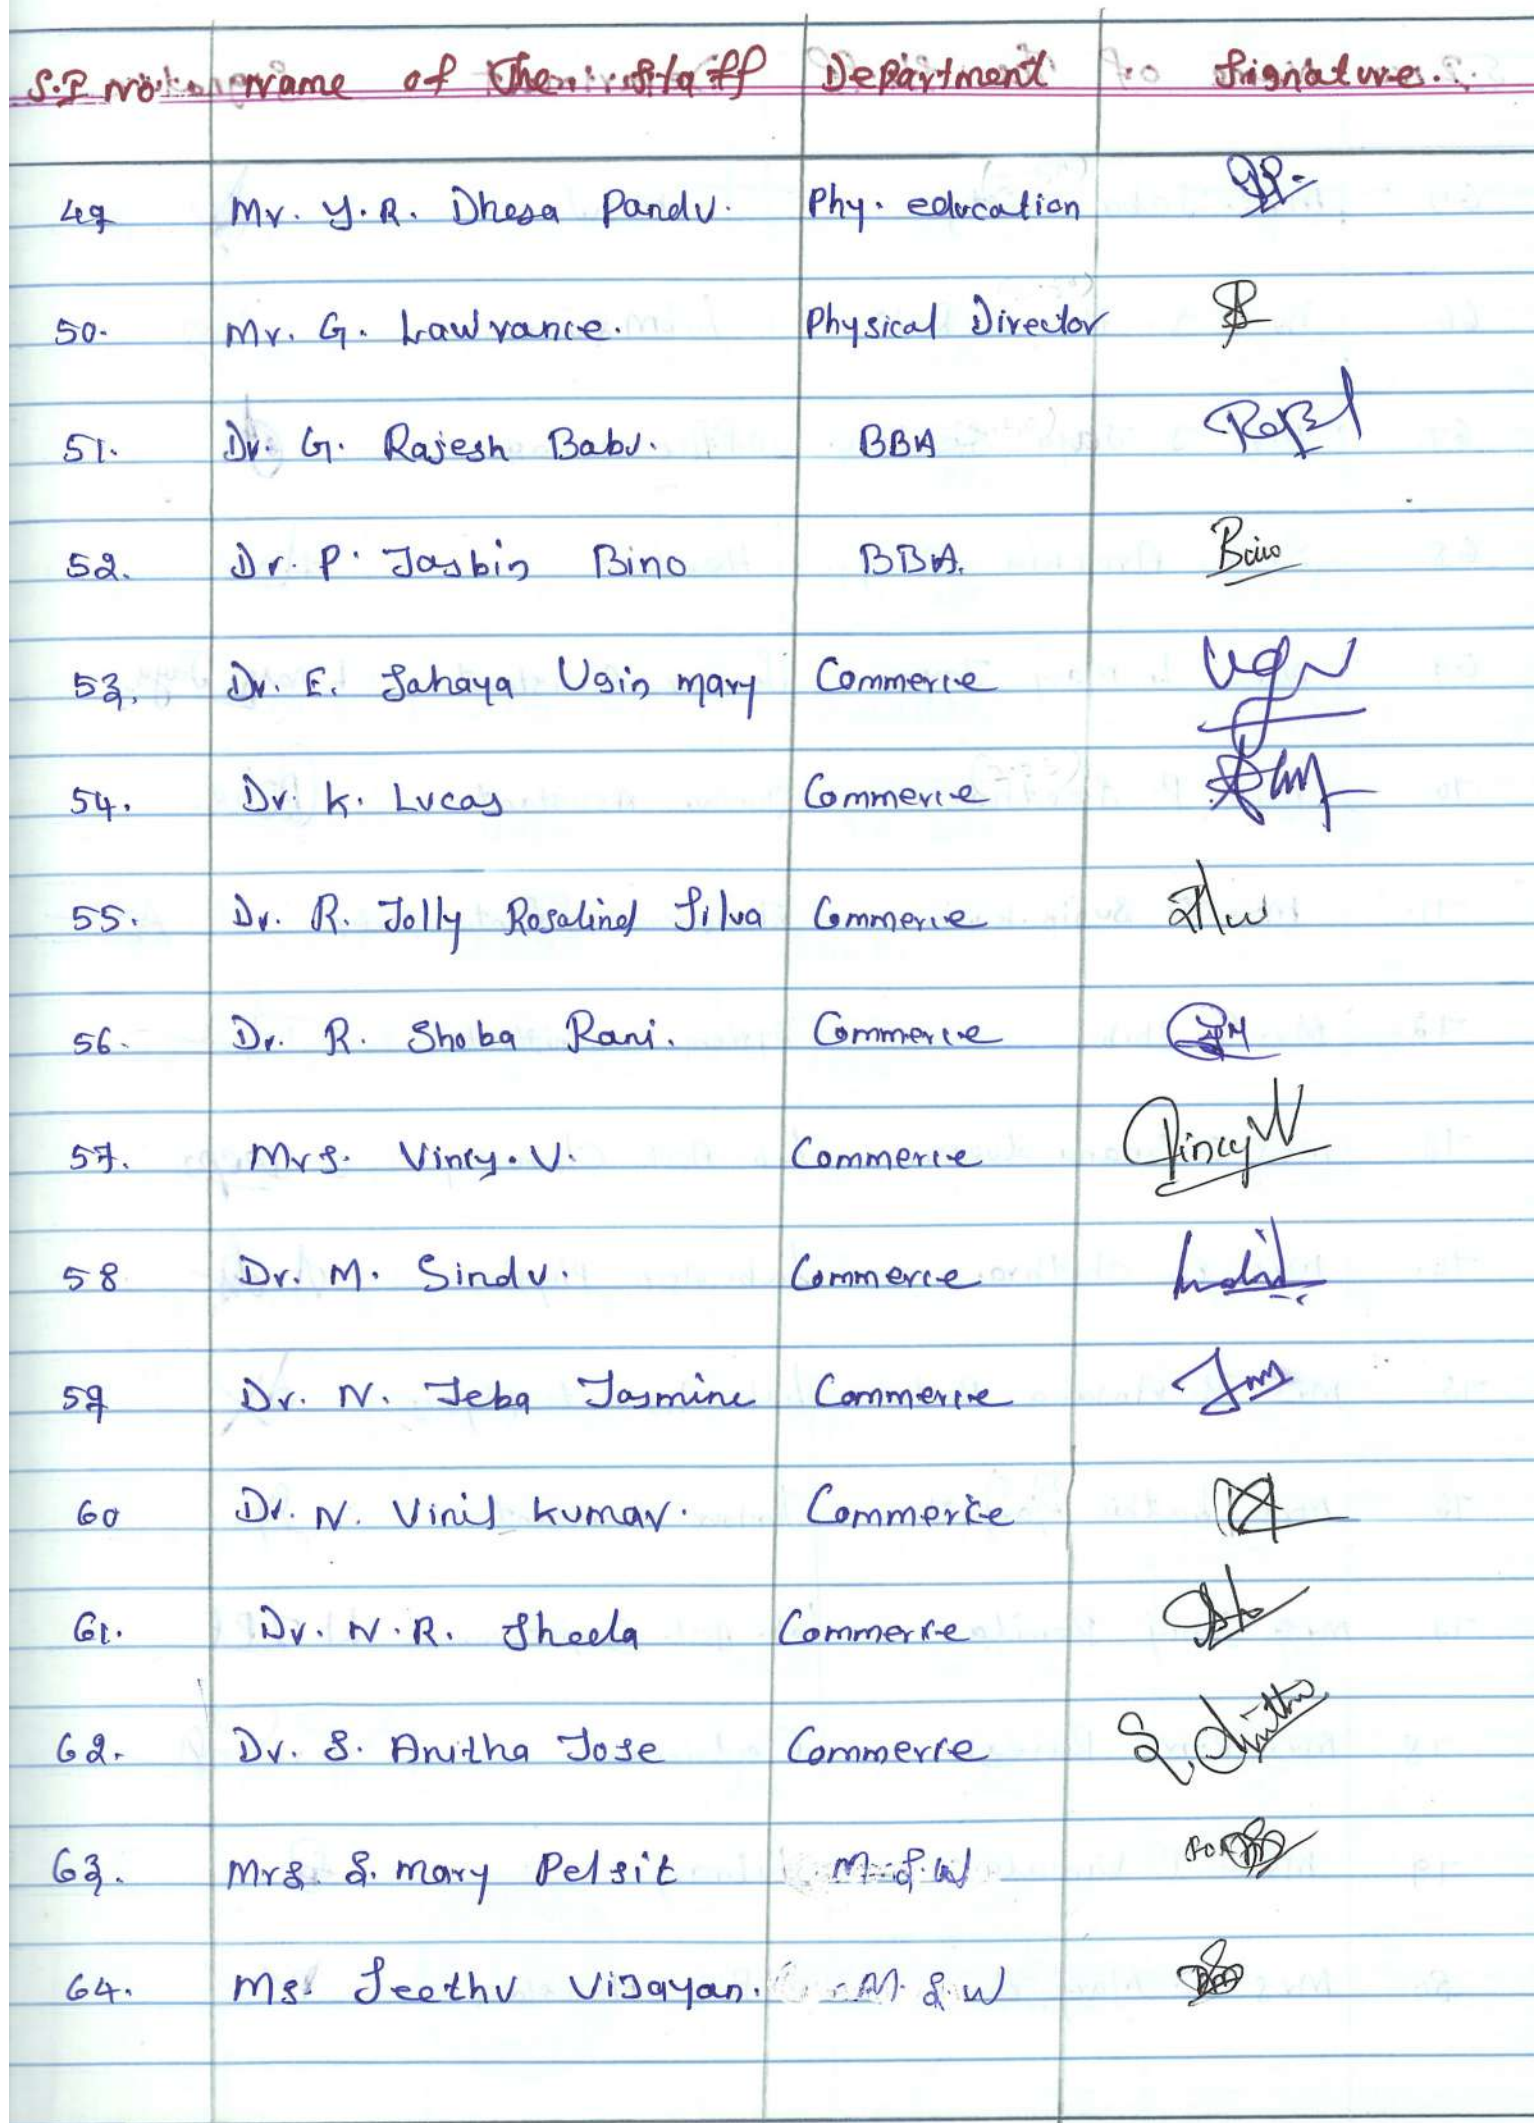 S.I No Name of The Staff Department Signature.
49 Mr. Y.R. Dhesa Pandu. Phy. education
50. Mr. G. Lawrance. Physical Director
51. Dr. G. Rajesh Babu. BBA
52. Dr. P. Jasbin Bino BBA. Bino
53. Dr. E. Sahaya Ugin mary Commerce
54. Dr. K. Lucas Commerce
55. Dr. R. Jolly Rosalind Silva Commerce
56. Dr. R. Shoba Rani. Commerce
57. Mrs. Vincy. V. Commerce Vincy V
58 Dr. M. Sindu. Commerce
59 Dr. N. Jeba Jasmine Commerce
60 Dr. N. Vinil Kumar. Commerce
61. Dr. N.R. Sheela Commerce
62. Dr. S. Anitha Jose Commerce S. Anitha
63. Mrs. S. mary Pelsit M.S.W
64. Ms. Jeethu Vijayan. M.S.W